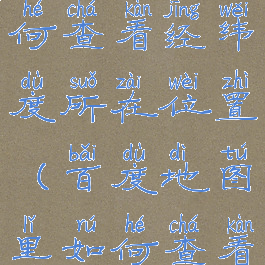 hé chá kàn jīng wěi
何查看经纬
dù suǒ zài wèi zhì
度所在位置
bǎi dù dì tú
(百度地图
lǐ rú hé chá kàn
里如何查看